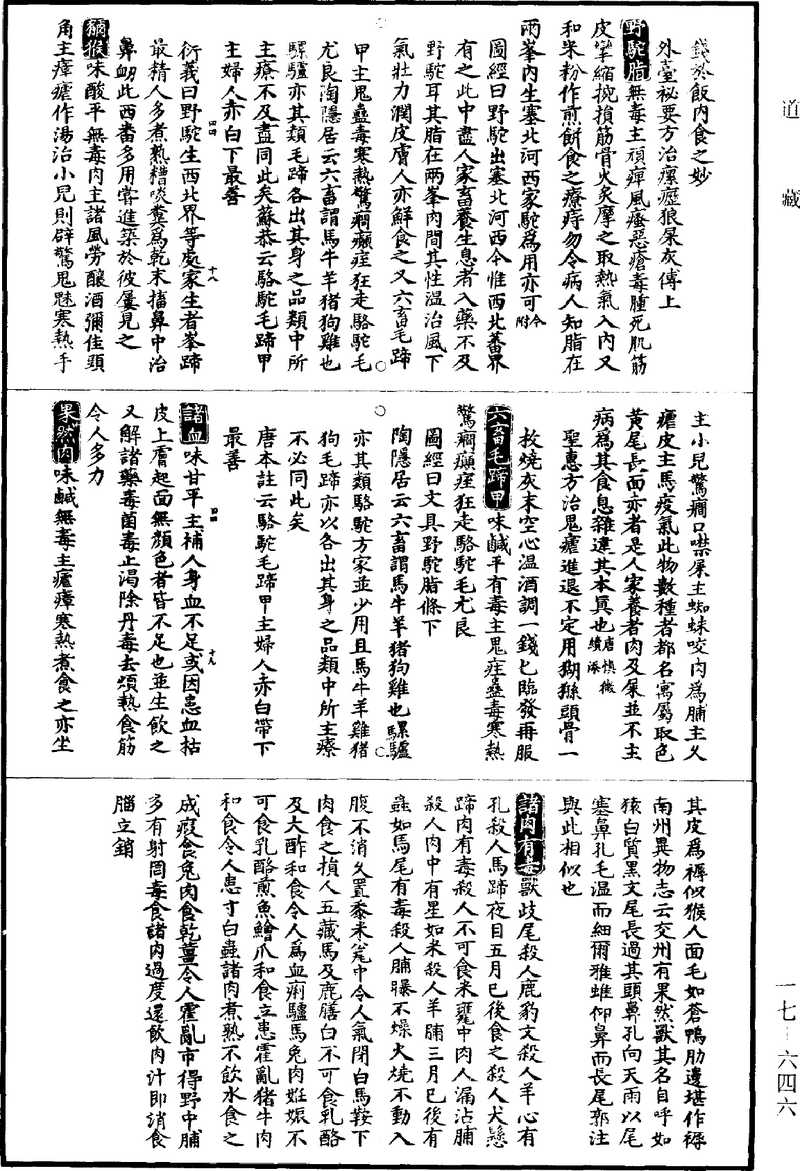 道藏
錢於飯內食之妙
外臺祕要方治瘰癧狼屎灰傅上
野駝脂無毒主頑痺風瘙惡瘡毒腫死肌筋
皮攣縮捥損筋骨火炙摩之取熱氣入肉又
和米粉作煎餅食之療痔勿令病人知脂在
兩峯內生塞北河西家駝爲用亦可今附
圖經曰野駝出塞北河西今惟西北蕃界
有之此中盡人家畜養生息者入藥不及
野駝耳其脂在兩峯肉間其性溫治風下
氣壯力潤皮膚人亦鮮食之又六畜毛蹄
甲主鬼蠱毒寒熱驚癇癲痓狂走駱駝毛
尤良陶隱居云六畜謂馬牛羊猪狗雞也
騾驢亦其類毛蹄各出其身之品類中所
主療不及盡同此矣蘇恭云駱駝毛蹄甲
主婦人赤白下最善
四四
十八
衍義曰野駝生西北界等處家生者峯蹄
最精人多煮熟糟啖糞爲乾末搐鼻中治
鼻衂此西番多用嘗進築於彼屢見之
獼猴味酸平無毒肉主諸風勞釀酒彌佳頭
角主瘴瘧作湯治小兒則辟驚鬼魅寒熱手
主小兒驚癇口噤屎主蜘蛛咬肉爲脯主久
瘧皮主馬疫氣此物數種者都名禺屬取色
黃尾長面赤者是人家養者肉及屎並不主
病爲其食息雜違其本眞也唐愼微續添
聖惠方治鬼瘧進退不定用猢猻頭骨一
枚燒灰末空心溫酒調一錢匕臨發再服
六畜毛蹄甲味鹹平有毒主鬼疰蠱毒寒熱
驚癇癲痓狂走駱駝毛尤良
圖經曰文具野駝脂條下
陶隱居云六畜謂馬牛羊猪狗雞也騾驢
亦其類駱駝方家並少用且馬牛羊雞猪
狗毛蹄亦以各出其身之品類中所主療
不必同此矣
唐本註云駱駝毛蹄甲主婦人赤白帶下
最善
四四
十九
諸血味甘平主補人身血不足或因患血枯
皮上膚起面無顏色者皆不足也並生飲之
又解諸藥毒菌毒止渴除丹毒去煩熱食筋
令人多力
果然肉味鹹無毒主瘧瘴寒熱煮食之亦坐
其皮爲褥似猴人面毛如蒼鴨肋邊堪作褥
南州異物志云交州有果然獸其名自呼如
猿白質黑文尾長過其頭鼻孔向天雨以尾
塞鼻孔毛溫而細爾雅蜼仰鼻而長尾郭注
與此相似也
諸肉有毒獸歧尾殺人鹿豹文殺人羊心有
孔殺人馬蹄夜目五月已後食之殺人犬懸
蹄肉有毒殺人不可食米甕中肉人漏沾脯
殺人肉中有星如米殺人羊脯三月已後有
蟲如馬尾有毒殺人脯曝不燥火燒不動入
腹不消久置黍米瓮中令人氣閉白馬鞍下
肉食之損人五藏馬及鹿膳白不可食乳酪
及大酢和食令人爲血痢驢馬兔肉姙娠不
可食乳酪煎魚鱠爪和食立患霍亂猪牛肉
和食令人患寸白蟲諸肉煮熟不飲水食之
成瘕食兔肉食乾薑令人霍亂市得野中脯
多有射罔毒食諸肉過度還飲肉汁即消食
腦立銷
一七‐六四六